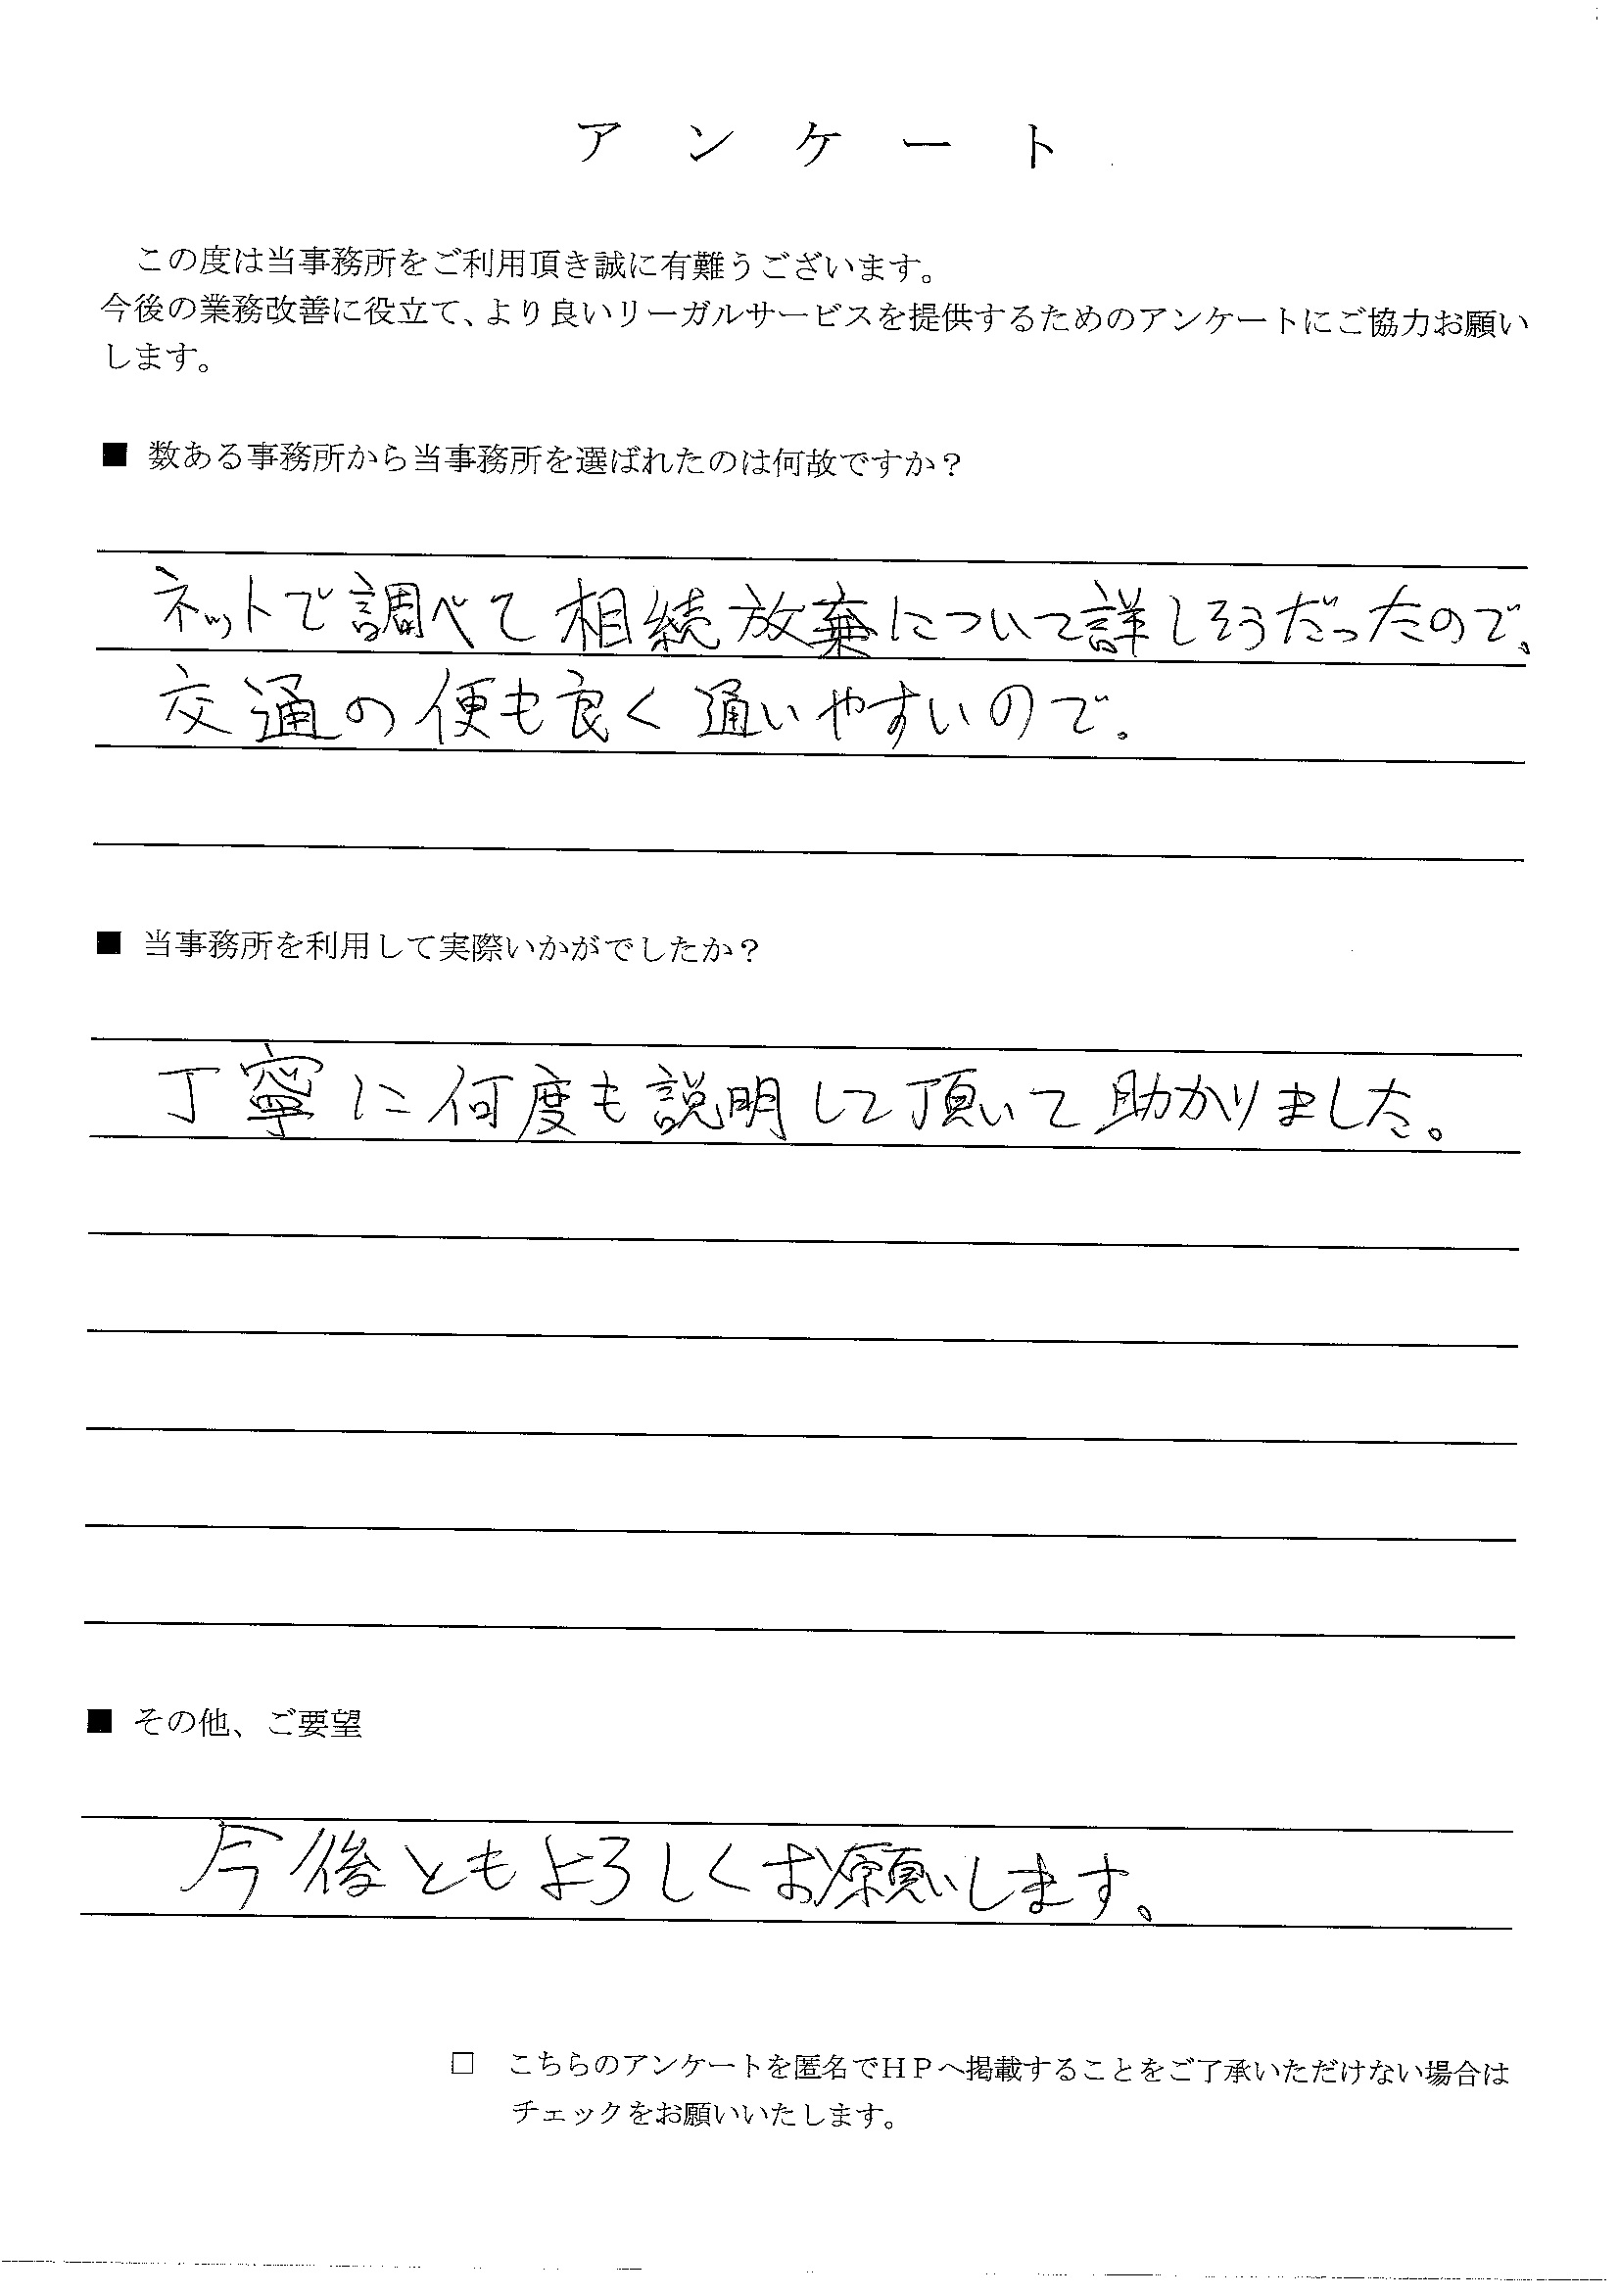 アンケート
この度は当事務所をご利用頂き誠に有難うございます。
今後の業務改善に役立て、より良いリーガルサービスを提供するためのアンケートにご協力お願い
します。
■ 数ある事務所から当事務所を選ばれたのは何故ですか？
ネットで調べて相続放棄について詳しそうだったので、
交通の便も良く通いやすいので。
■ 当事務所を利用して実際いかがでしたか？
丁寧に何度も説明して頂いて助かりました。
■ その他、ご要望
今後ともよろしくお願いします。
□ こちらのアンケートを匿名でＨＰへ掲載することをご了承いただけない場合は
チェックをお願いいたします。